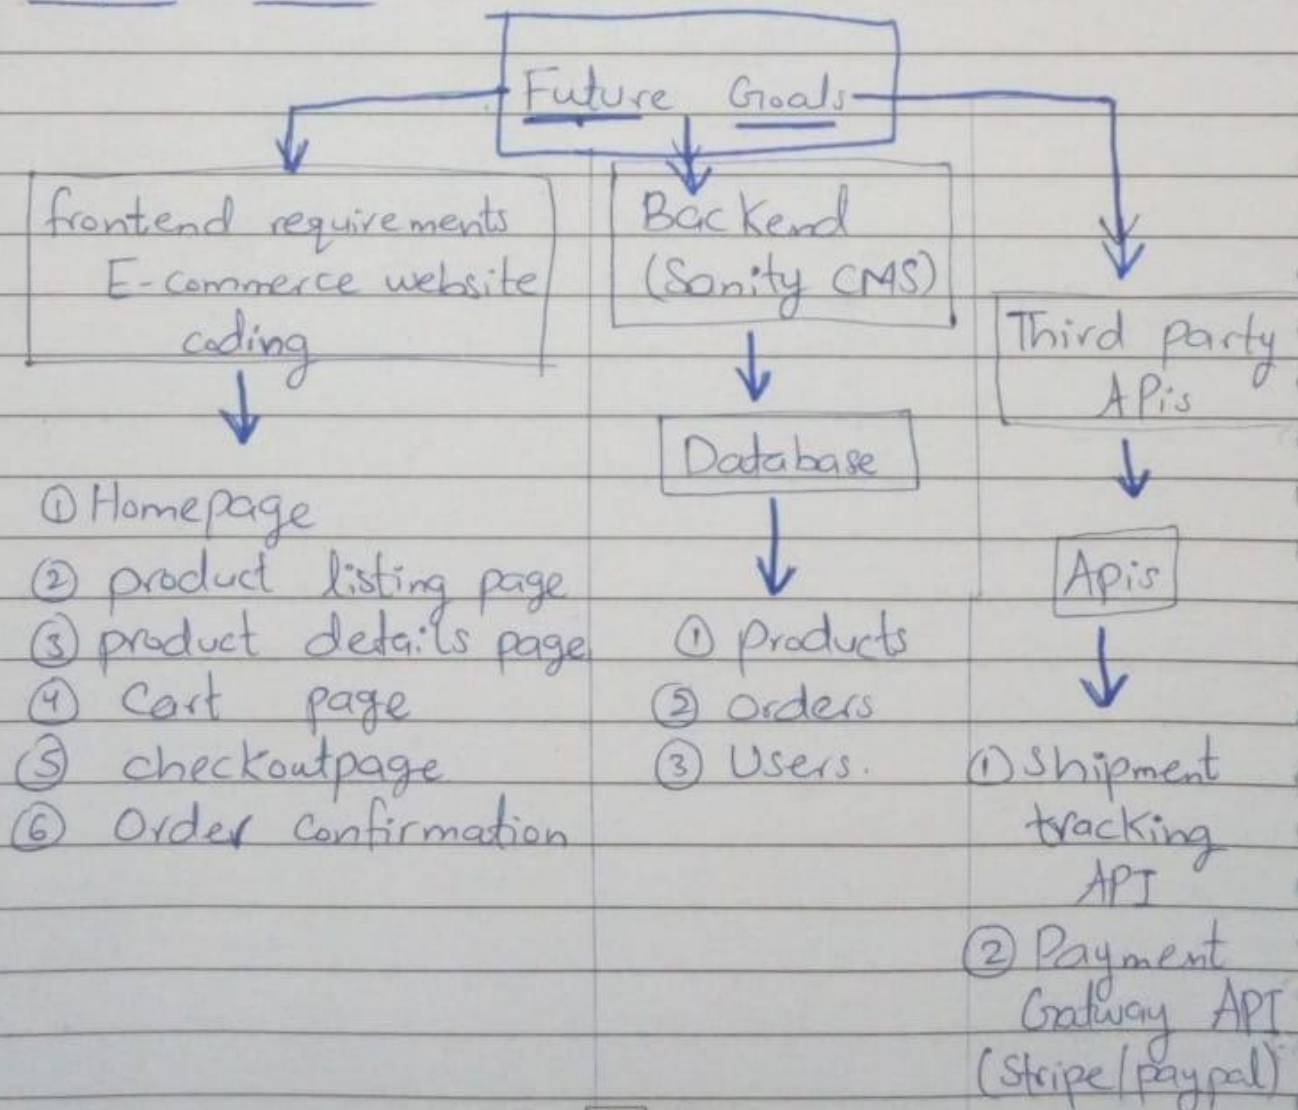 Future Goals
frontend requirements
E-commerce website
coding
① Homepage
② product listing page
③ product details page
④ Cart page
⑤ checkoutpage
⑥ Order Confirmation
Backend
(Sanity CMS)
Database
① products
② orders
③ Users.
Third party
APis
Apis
① Shipment
tracking
API
② Payment
Gatway API
(Stripe/paypal)